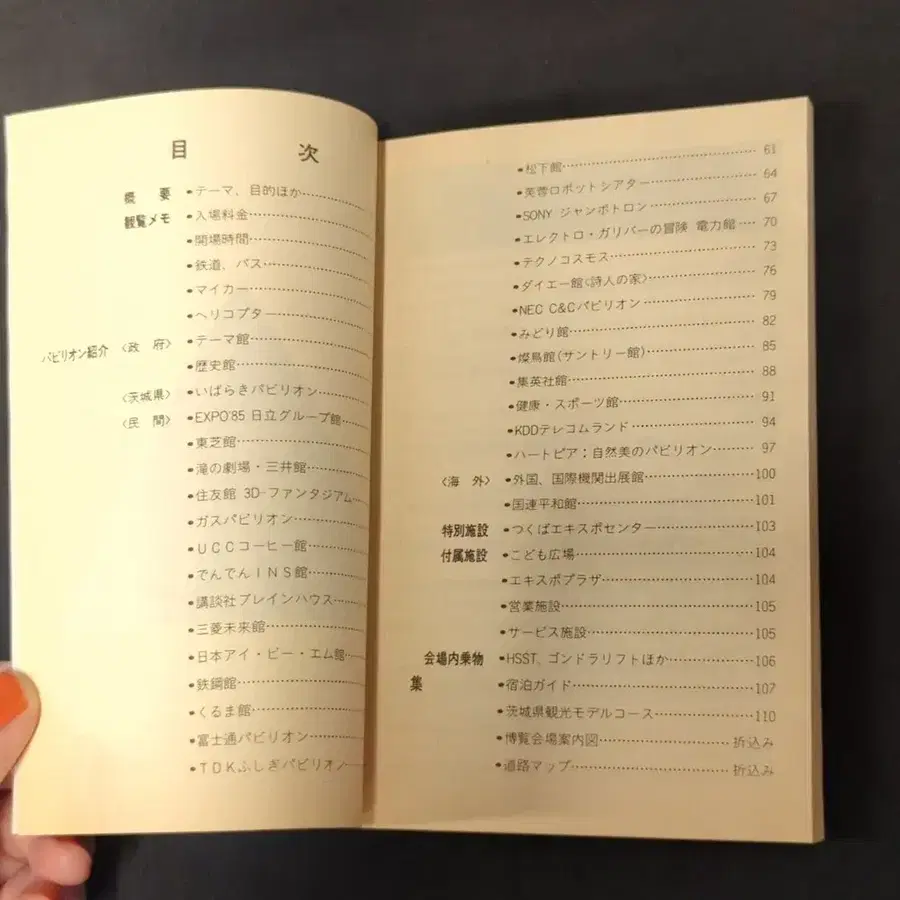 目次
概要 •テーマ、目的ほか
観覧メモ •入場料金
•開場時間
•鉄道、バス
•マイカー
•ヘリコプター
パビリオン紹介 〈政府〉 •テーマ館
•歴史館
〈茨城県〉 •いばらきパビリオン
〈民間〉 •EXPO'85 日立グループ館
•東芝館
•滝の劇場・三井館
•住友館 3D-ファンタジアム
•ガスパビリオン
•UCCコーヒー館
•でんでんINS館
•講談社ブレインハウス
•三菱未来館
•日本アイ・ビー・エム館
•鉄鋼館
•くるま館
•富士通パビリオン
•TDKふしぎパビリオン
•松下館 61
•芙蓉ロボットシアター 64
•SONY ジャンボトロン 67
•エレクトロ・ガリバーの冒険 電力館 70
•テクノコスモス 73
•ダイエー館〈詩人の家〉 76
•NEC C&Cパビリオン 79
•みどり館 82
•燦鳥館(サントリー館) 85
•集英社館 88
•健康・スポーツ館 91
•KDDテレコムランド 94
•ハートピア:自然美のパビリオン 97
〈海外〉 •外国、国際機関出展館 100
•国連平和館 101
特別施設 •つくばエキスポセンター 103
付属施設 •こども広場 104
•エキスポプラザ 104
•営業施設 105
•サービス施設 105
会場内乗物 •HSST、ゴンドラリフトほか 106
集 •宿泊ガイド 107
•茨城県観光モデルコース 110
•博覧会場案内図 折込み
•道路マップ 折込み